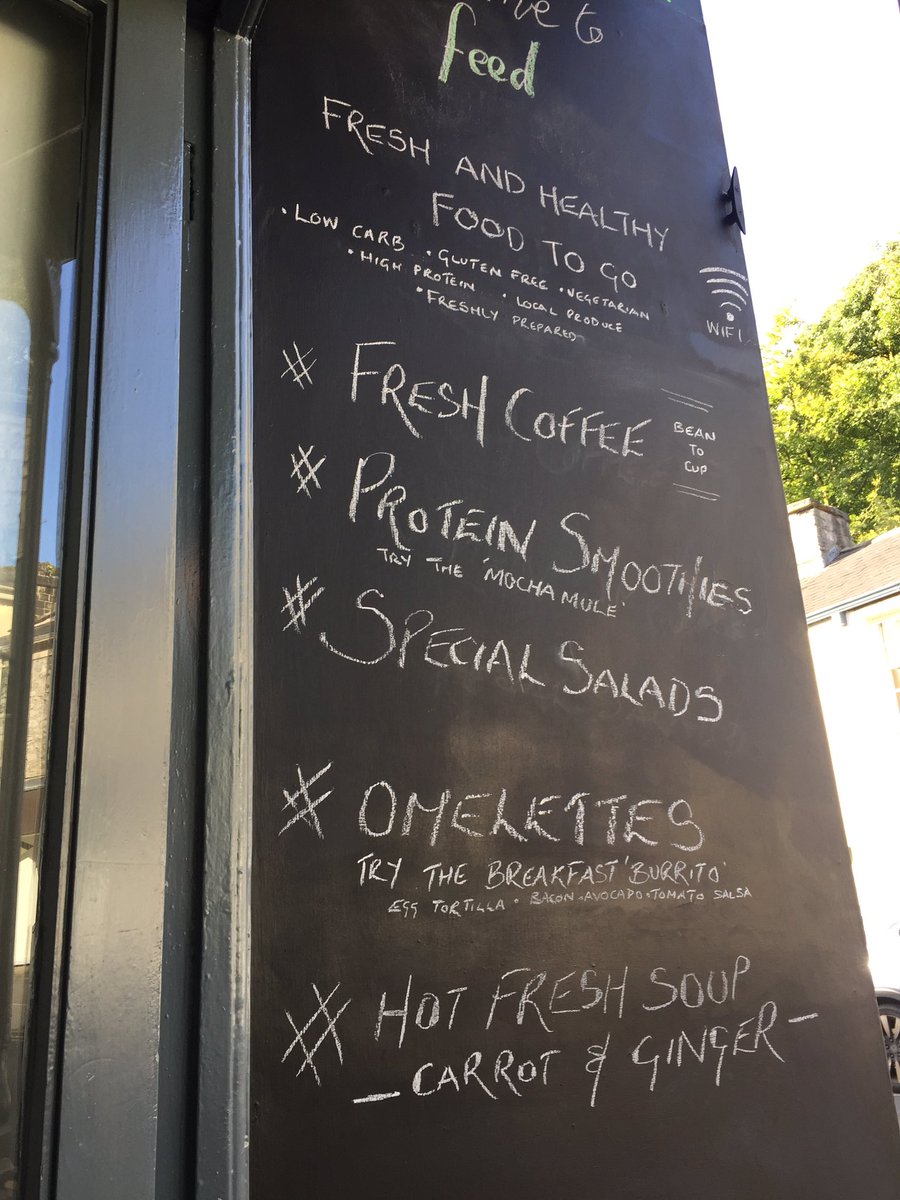 to
feed
FRESH AND HEALTHY
FOOD TO GO
• LOW CARB • GLUTEN FREE • VEGETARIAN
• HIGH PROTEIN • LOCAL PRODUCE
• FRESHLY PREPARED
WIFI
# FRESH COFFEE
BEAN
TO
CUP
# PROTEIN SMOOTHIES
TRY THE 'MOCHA MULE'
# SPECIAL SALADS
# OMELETTES
TRY THE BREAKFAST 'BURRITO'
EGG TORTILLA • BACON • AVOCADO • TOMATO SALSA
# HOT FRESH SOUP
- CARROT & GINGER -